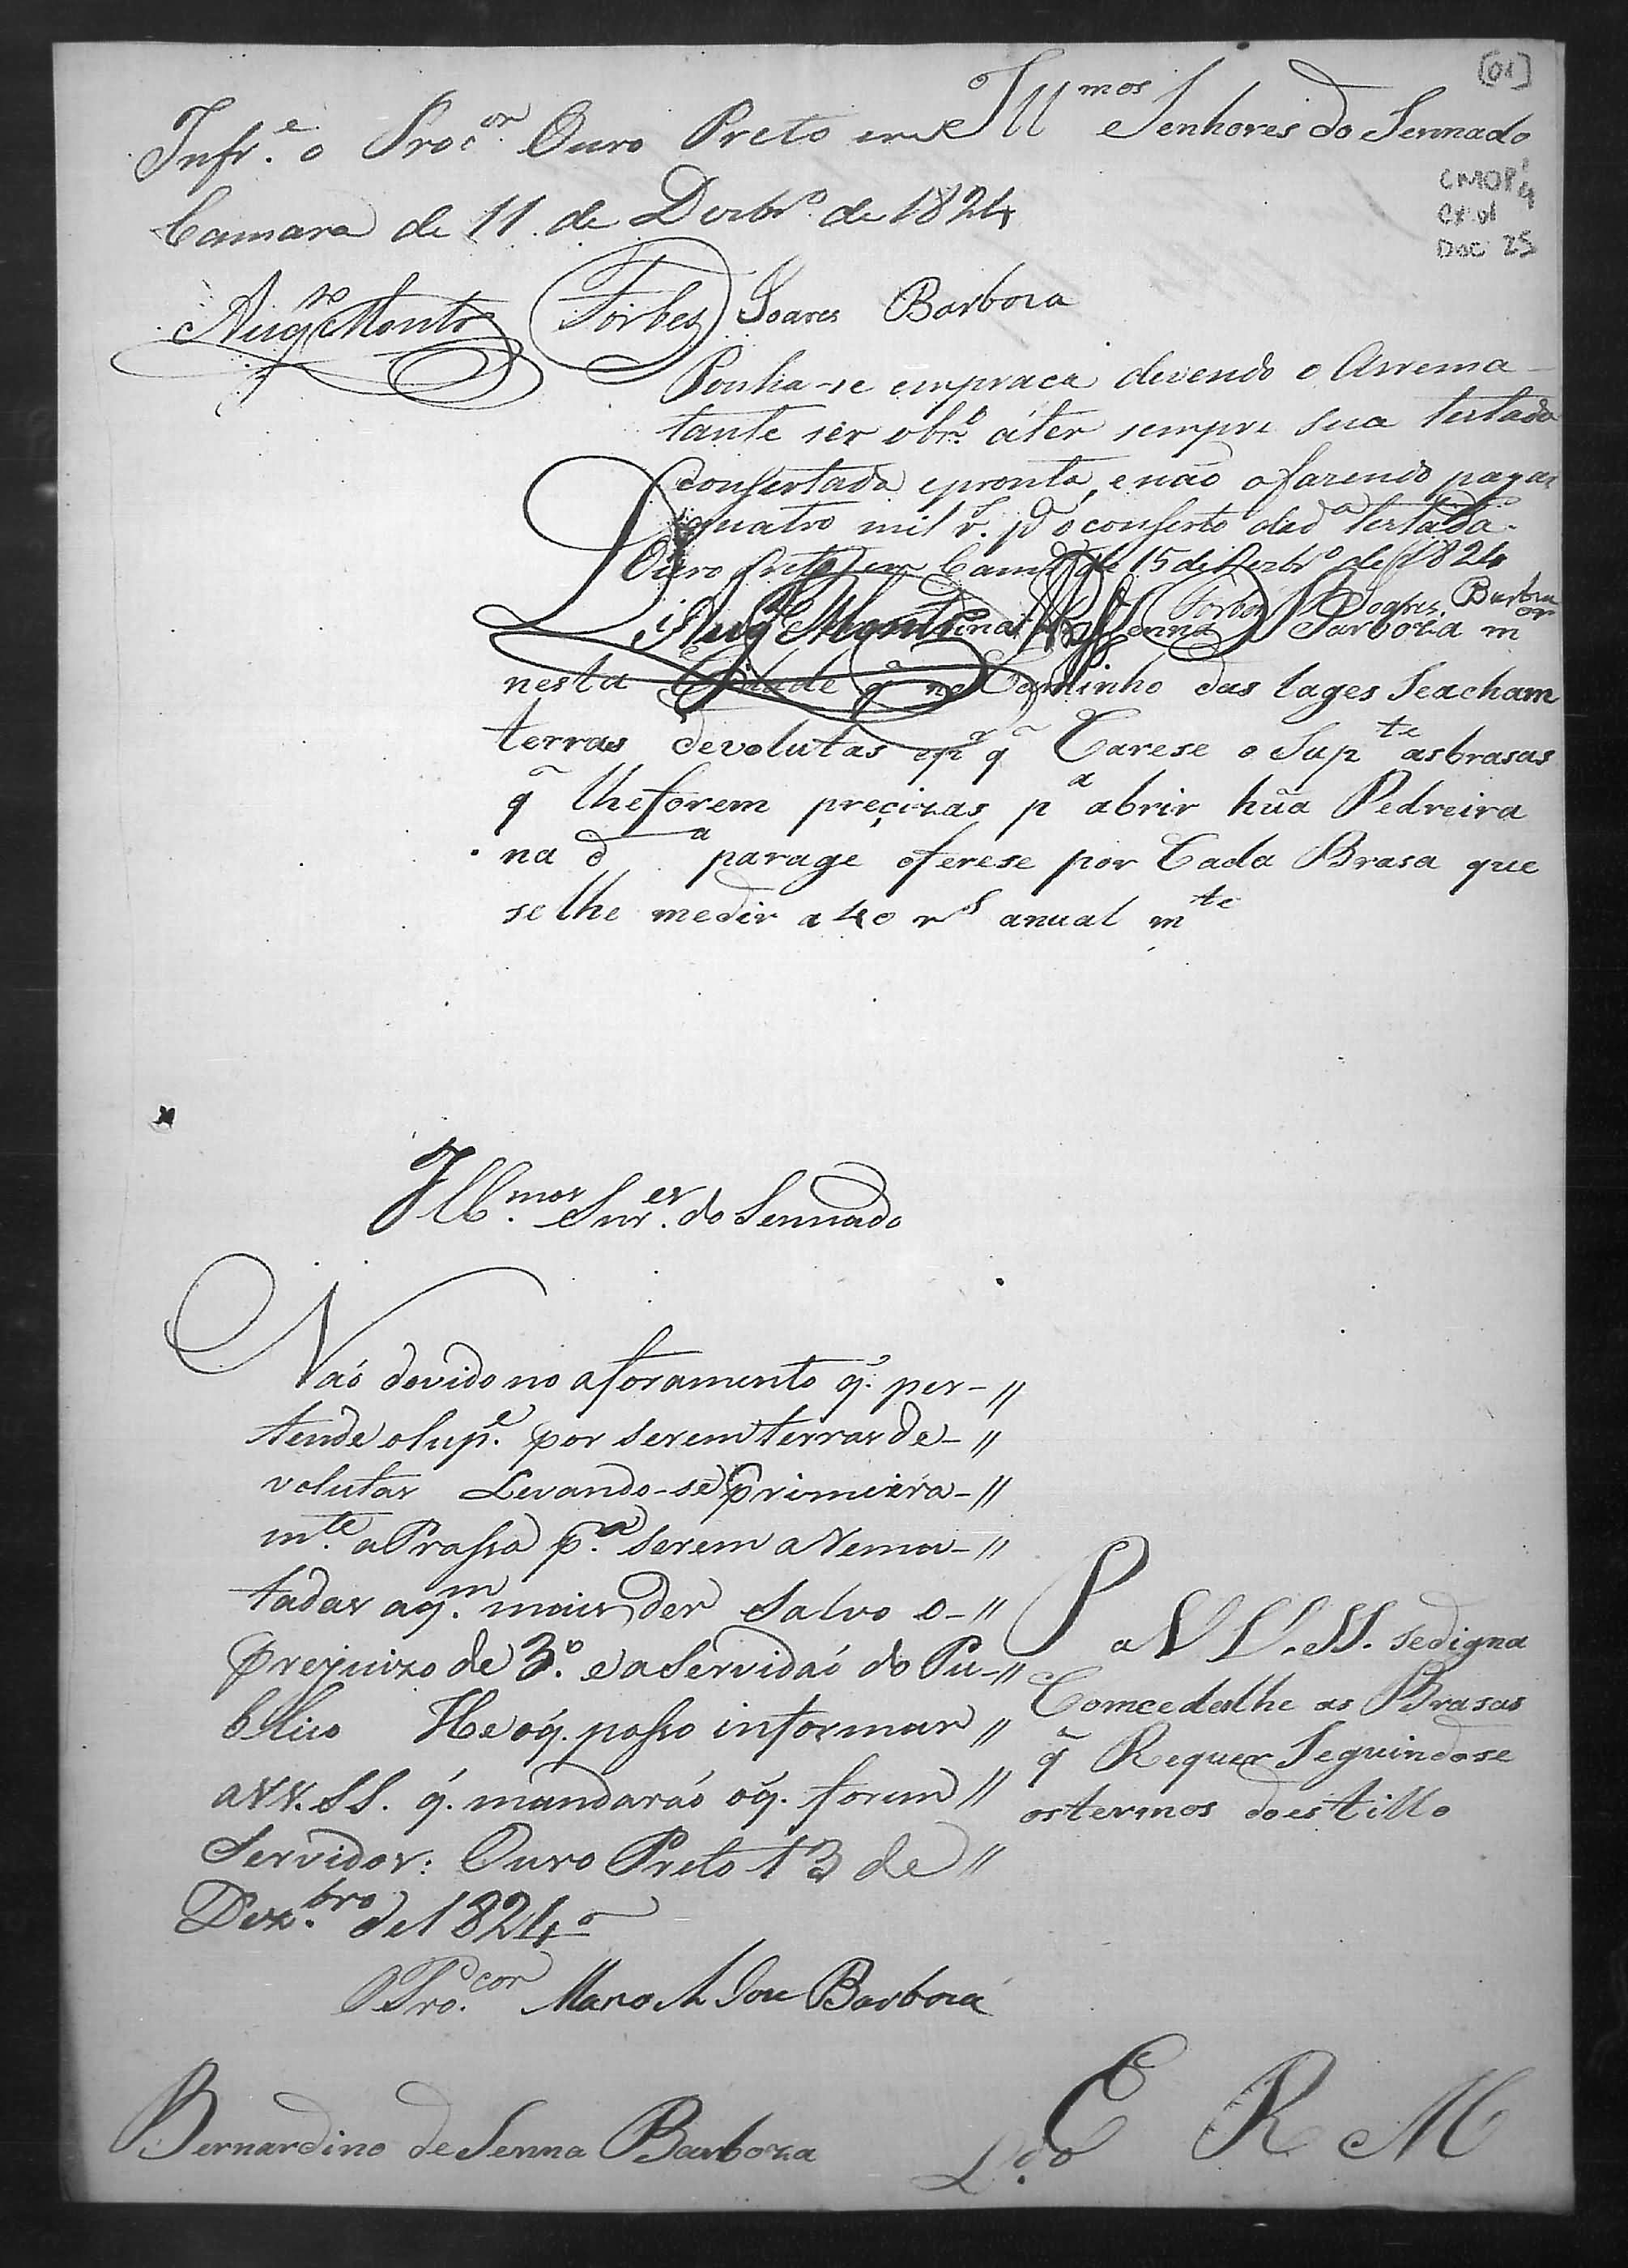 [01]
Illmos Senhores do Sennado
Infr.e o Procor. Ouro Preto em
Camara de 11 de Dezbro. de 1824
CMOP
Cx. 01
Doc 25
Augto Montro Forbes Soares Barboza
Ponha-se empraca devendo o Arrema-
tante ser obro. áter sempre sua testada
Consertada epronta, enão ofazendo pagar
quatro mil rs. pa o conserto dada testada.
Ouro Preto em Camra de 15 de Dezbro de 1824
Augto Montro Forbes Soares Barboza
Senna Barboza mor
nesta Cidade q̃ no Caminho das lages Seacham
terras devolutas epr q̃ Carese o Supte asbrasas
q̃ lheforem preçizas pa abrir hũa Pedreira
na da parage oferese por Cada Brasa que
selhe medir a 40 rs anual mte
Illmos. Snres. do Sennado
Naó dovido no aforamento q̃. per-//
tende oSupe. por serem terras de-//
volutas Levando-se primeira-//
mte. aPrassa pa. serem aRema-//
tadas aqm. mais der Salvo o-//
prejuizo de 3º. e aServidaó do Pu-//
blico He oq̃. posso informar //
aVV. SS. q̃. mandaraó oq̃. forem //
Servidos: Ouro Preto 13 de //
Dezbro. de 1824
OProcor. Manoel Jose Barboza
P a VV. SS. sedigna
Comcederlhe as Brasas
q̃ Requer Seguindose
ostermos doestillo
Bernardino de Senna Barboza
E R M